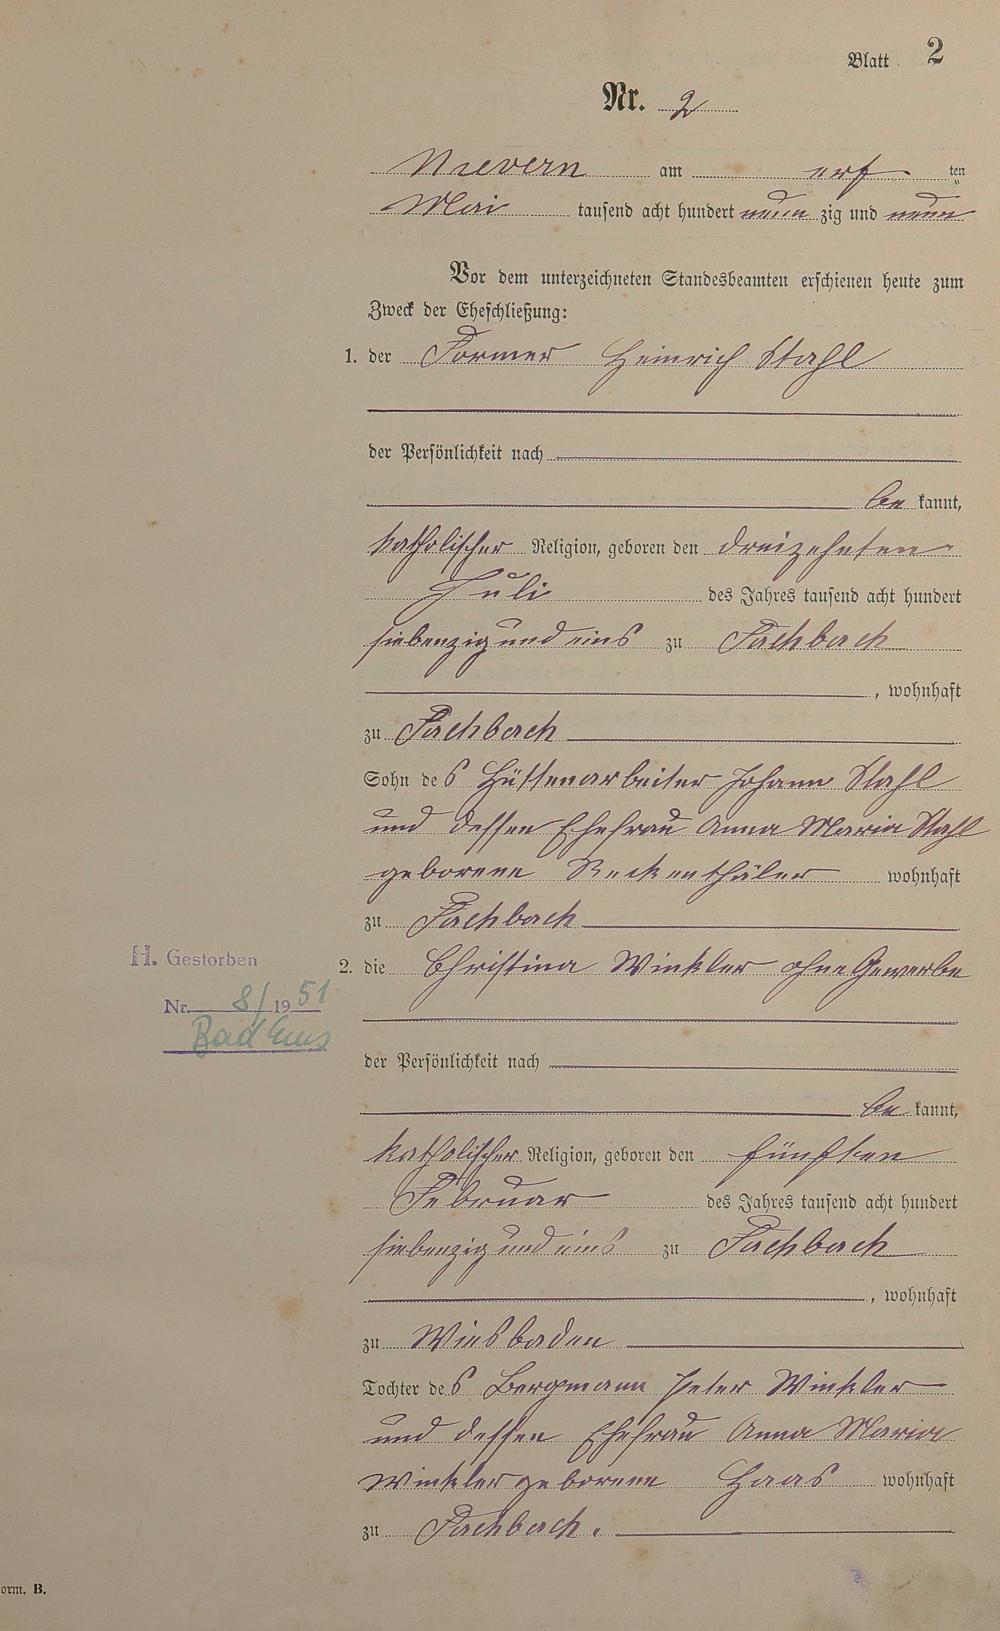 Blatt 2
Nr. 2
Nievern am ten
Mai tausend acht hundert neun zig und neun
Vor dem unterzeichneten Standesbeamten erschienen heute zum
Zweck der Eheschließung:
1. der Former Heinrich Stahl
der Persönlichkeit nach
be kannt,
katholischer Religion, geboren den dreizehnten
Juli des Jahres tausend acht hundert
siebenzig und eins zu Fachbach
, wohnhaft
zu Fachbach
Sohn des Hüttenarbeiter Johann Stahl
und dessen Ehefrau Anna Maria Stahl
geborene Reckenthäler wohnhaft
zu Fachbach
H. Gestorben
Nr. 8/1951
Bad Ems
2. die Christina Winkler ohne Gewerbe
der Persönlichkeit nach
be kannt,
katholischer Religion, geboren den fünften
Februar des Jahres tausend acht hundert
siebenzig und eins zu Fachbach
, wohnhaft
zu Wiesbaden
Tochter des Bergmann Peter Winkler
und dessen Ehefrau Anna Maria
Winkler geborene Haas wohnhaft
zu Fachbach.
orm. B.